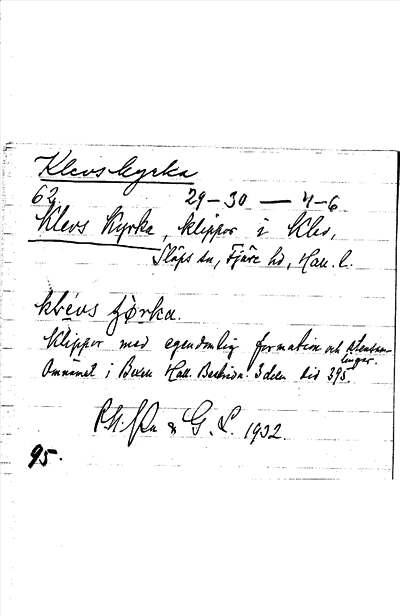 Klevs kyrka
62 29–30 — 4–6
Klevs Kyrka, klippor i Klev,
Släps sn, Fjäre hd, Hall. l.
klevs
Klippor med egendomlig formation och stensam-
lingar.
Omnämnt i Hall. 3 delen sid 395.
& G. L. 1932.
95.